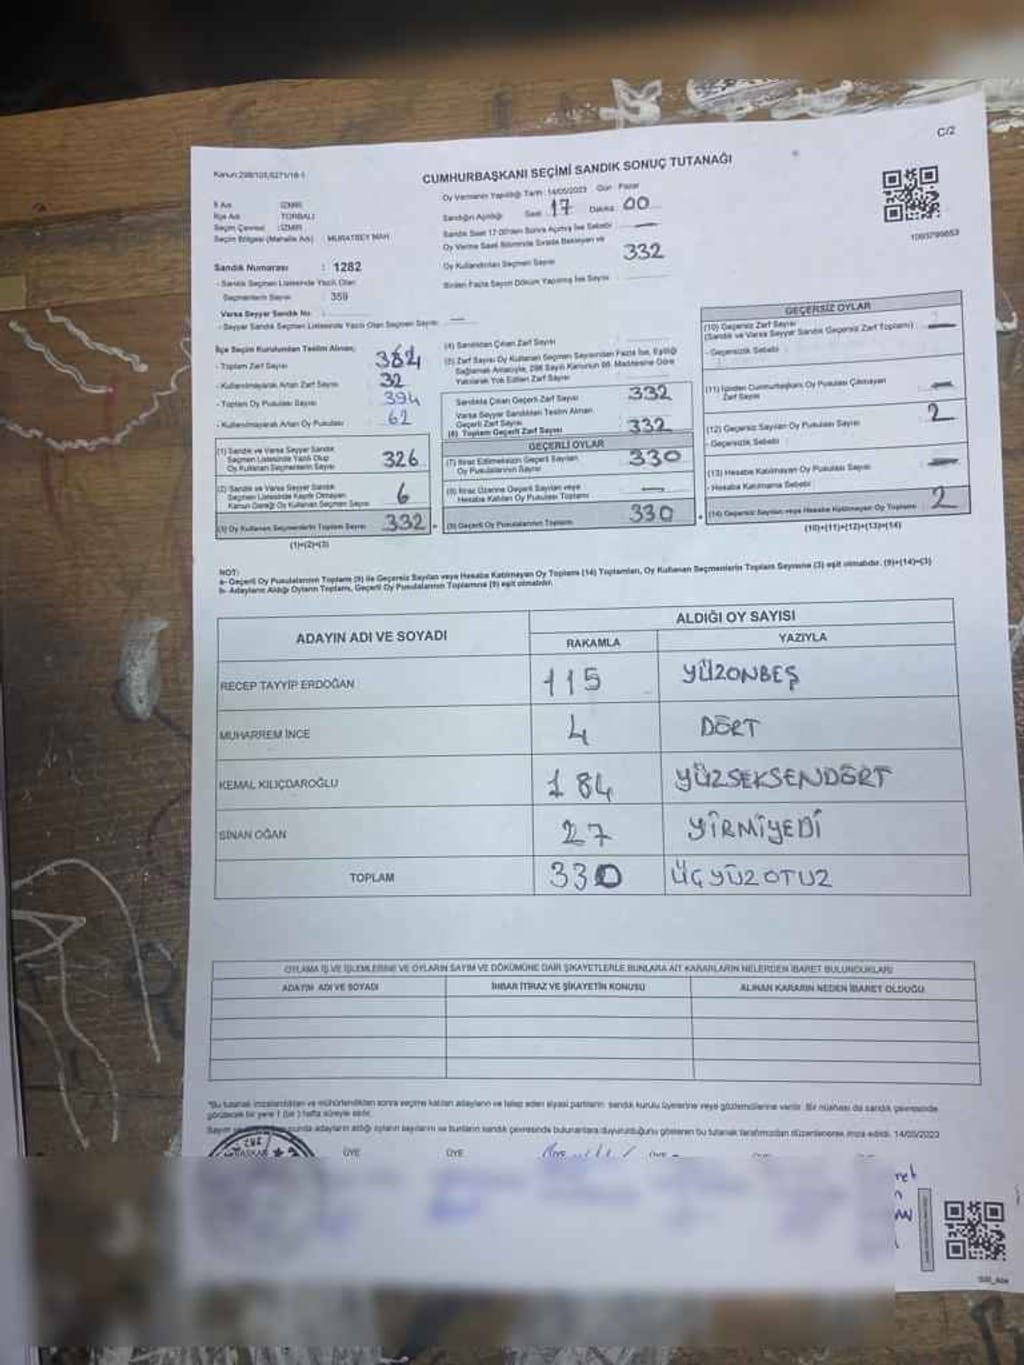 C/2
Kanun:298/105,6271/16-1
CUMHURBAŞKANI SEÇİMİ SANDIK SONUÇ TUTANAĞI
İl Adı : İZMİR
İlçe Adı : TORBALI
Seçim Çevresi : İZMİR
Seçim Bölgesi (Mahalle Adı) : MURATBEY MAH.
Sandık Numarası : 1282
- Sandık Seçmen Listesinde Yazılı Olan
Seçmenlerin Sayısı : 359
Varsa Seyyar Sandık No :
- Seyyar Sandık Seçmen Listesinde Yazılı Olan Seçmen Sayısı : —
Oy Vermenin Yapıldığı Tarih : 14/05/2023 Gün : Pazar
Sandığın Açıldığı Saat : 17 Dakika : 00
Sandık Saat 17:00'den Sonra Açılmış İse Sebebi : —
Oy Verme Saati Bitiminde Sırada Bekleyen ve
Oy Kullandırılan Seçmen Sayısı : 332
Birden Fazla Sayım Döküm Yapılmış İse Sayısı :
İlçe Seçim Kurulundan Teslim Alınan;
- Toplam Zarf Sayısı
- Kullanılmayarak Artan Zarf Sayısı : 32
- Toplam Oy Pusulası Sayısı : 394
- Kullanılmayarak Artan Oy Pusulası : 62
(1) Sandık ve Varsa Seyyar Sandık
Seçmen Listesinde Yazılı Olup
Oy Kullanan Seçmenlerin Sayısı 326
(2) Sandık ve Varsa Seyyar Sandık
Seçmen Listesinde Kayıtlı Olmayan
Kanun Gereği Oy Kullanan Seçmen Sayısı 6
(3) Oy Kullanan Seçmenlerin Toplam Sayısı 332
(1)+(2)=(3)
(4) Sandıktan Çıkan Zarf Sayısı
(5) Zarf Sayısı Oy Kullanan Seçmen Sayısından Fazla İse, Eşitliği
Sağlamak Amacıyla, 298 Sayılı Kanunun 98. Maddesine Göre
Yakılarak Yok Edilen Zarf Sayısı
Sandıkta Çıkan Geçerli Zarf Sayısı 332
Varsa Seyyar Sandıktan Teslim Alınan
Geçerli Zarf Sayısı
(6) Toplam Geçerli Zarf Sayısı 332
GEÇERLİ OYLAR
(7) İtiraz Edilmeksizin Geçerli Sayılan
Oy Pusulalarının Sayısı 330
(8) İtiraz Üzerine Geçerli Sayılan veya
Hesaba Katılan Oy Pusulası Toplamı —
(9) Geçerli Oy Pusulalarının Toplamı 330
GEÇERSİZ OYLAR
(10) Geçersiz Zarf Sayısı
(Sandık ve Varsa Seyyar Sandık Geçersiz Zarf Toplamı) —
- Geçersizlik Sebebi :
(11) İçinden Cumhurbaşkanı Oy Pusulası Çıkmayan
Zarf Sayısı —
(12) Geçersiz Sayılan Oy Pusulası Sayısı 2
- Geçersizlik Sebebi :
(13) Hesaba Katılmayan Oy Pusulası Sayısı —
- Hesaba Katılmama Sebebi :
(14) Geçersiz Sayılan veya Hesaba Katılmayan Oy Toplamı 2
(10)+(11)+(12)+(13)=(14)
NOT:
a- Geçerli Oy Pusulalarının Toplamı (9) ile Geçersiz Sayılan veya Hesaba Katılmayan Oy Toplamı (14) Toplamları, Oy Kullanan Seçmenlerin Toplam Sayısına (3) eşit olmalıdır. (9)+(14)=(3)
b- Adayların Aldığı Oyların Toplamı, Geçerli Oy Pusulalarının Toplamına (9) eşit olmalıdır.
ADAYIN ADI VE SOYADI ALDIĞI OY SAYISI
RAKAMLA YAZIYLA
RECEP TAYYİP ERDOĞAN 115 YÜZONBEŞ
MUHARREM İNCE 4 DÖRT
KEMAL KILIÇDAROĞLU 184 YÜZSEKSENDÖRT
SİNAN OĞAN 27 YİRMİYEDİ
TOPLAM 330 ÜÇYÜZOTUZ
OYLAMA İŞ VE İŞLEMLERİNE VE OYLARIN SAYIM VE DÖKÜMÜNE DAİR ŞİKAYETLERLE BUNLARA AİT KARARLARIN NELERDEN İBARET BULUNDUKLARI
ADAYIN ADI VE SOYADI İHBAR İTİRAZ VE ŞİKAYETİN KONUSU ALINAN KARARIN NEDEN İBARET OLDUĞU
*Bu tutanak imzalandıktan ve mühürlendikten sonra seçime katılan adayların ve talep eden siyasi partilerin sandık kurulu üyelerine veya gözlemcilerine verilir. Bir nüshası da sandık çevresinde
görülecek bir yere 1 (bir) hafta süreyle asılır.
adayların aldığı oyların sayılarını ve bunların sandık çevresinde bulunanlara duyurulduğunu gösteren bu tutanak tarafımızdan düzenlenerek imza edildi. 14/05/2023
ÜYE ÜYE ÜYE